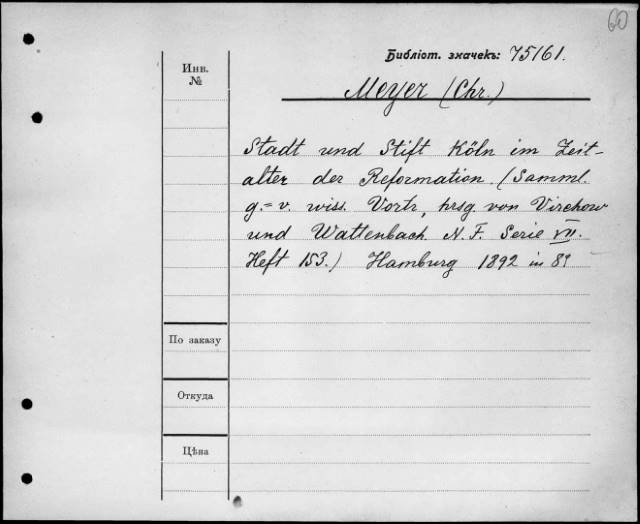 60
Библіот. значекъ: 75/61.
Инв.
№
Meyer (Chr.)
Stadt und Stift Köln im Zeit-
alter der Reformation. (Samml.
g.=v. wiss. Vortr., hrsg. von Virchow
und Wattenbach. N. F. Serie VII.
Heft 153.) Hamburg 1892 in 8º
По заказу
Откуда
Цѣна